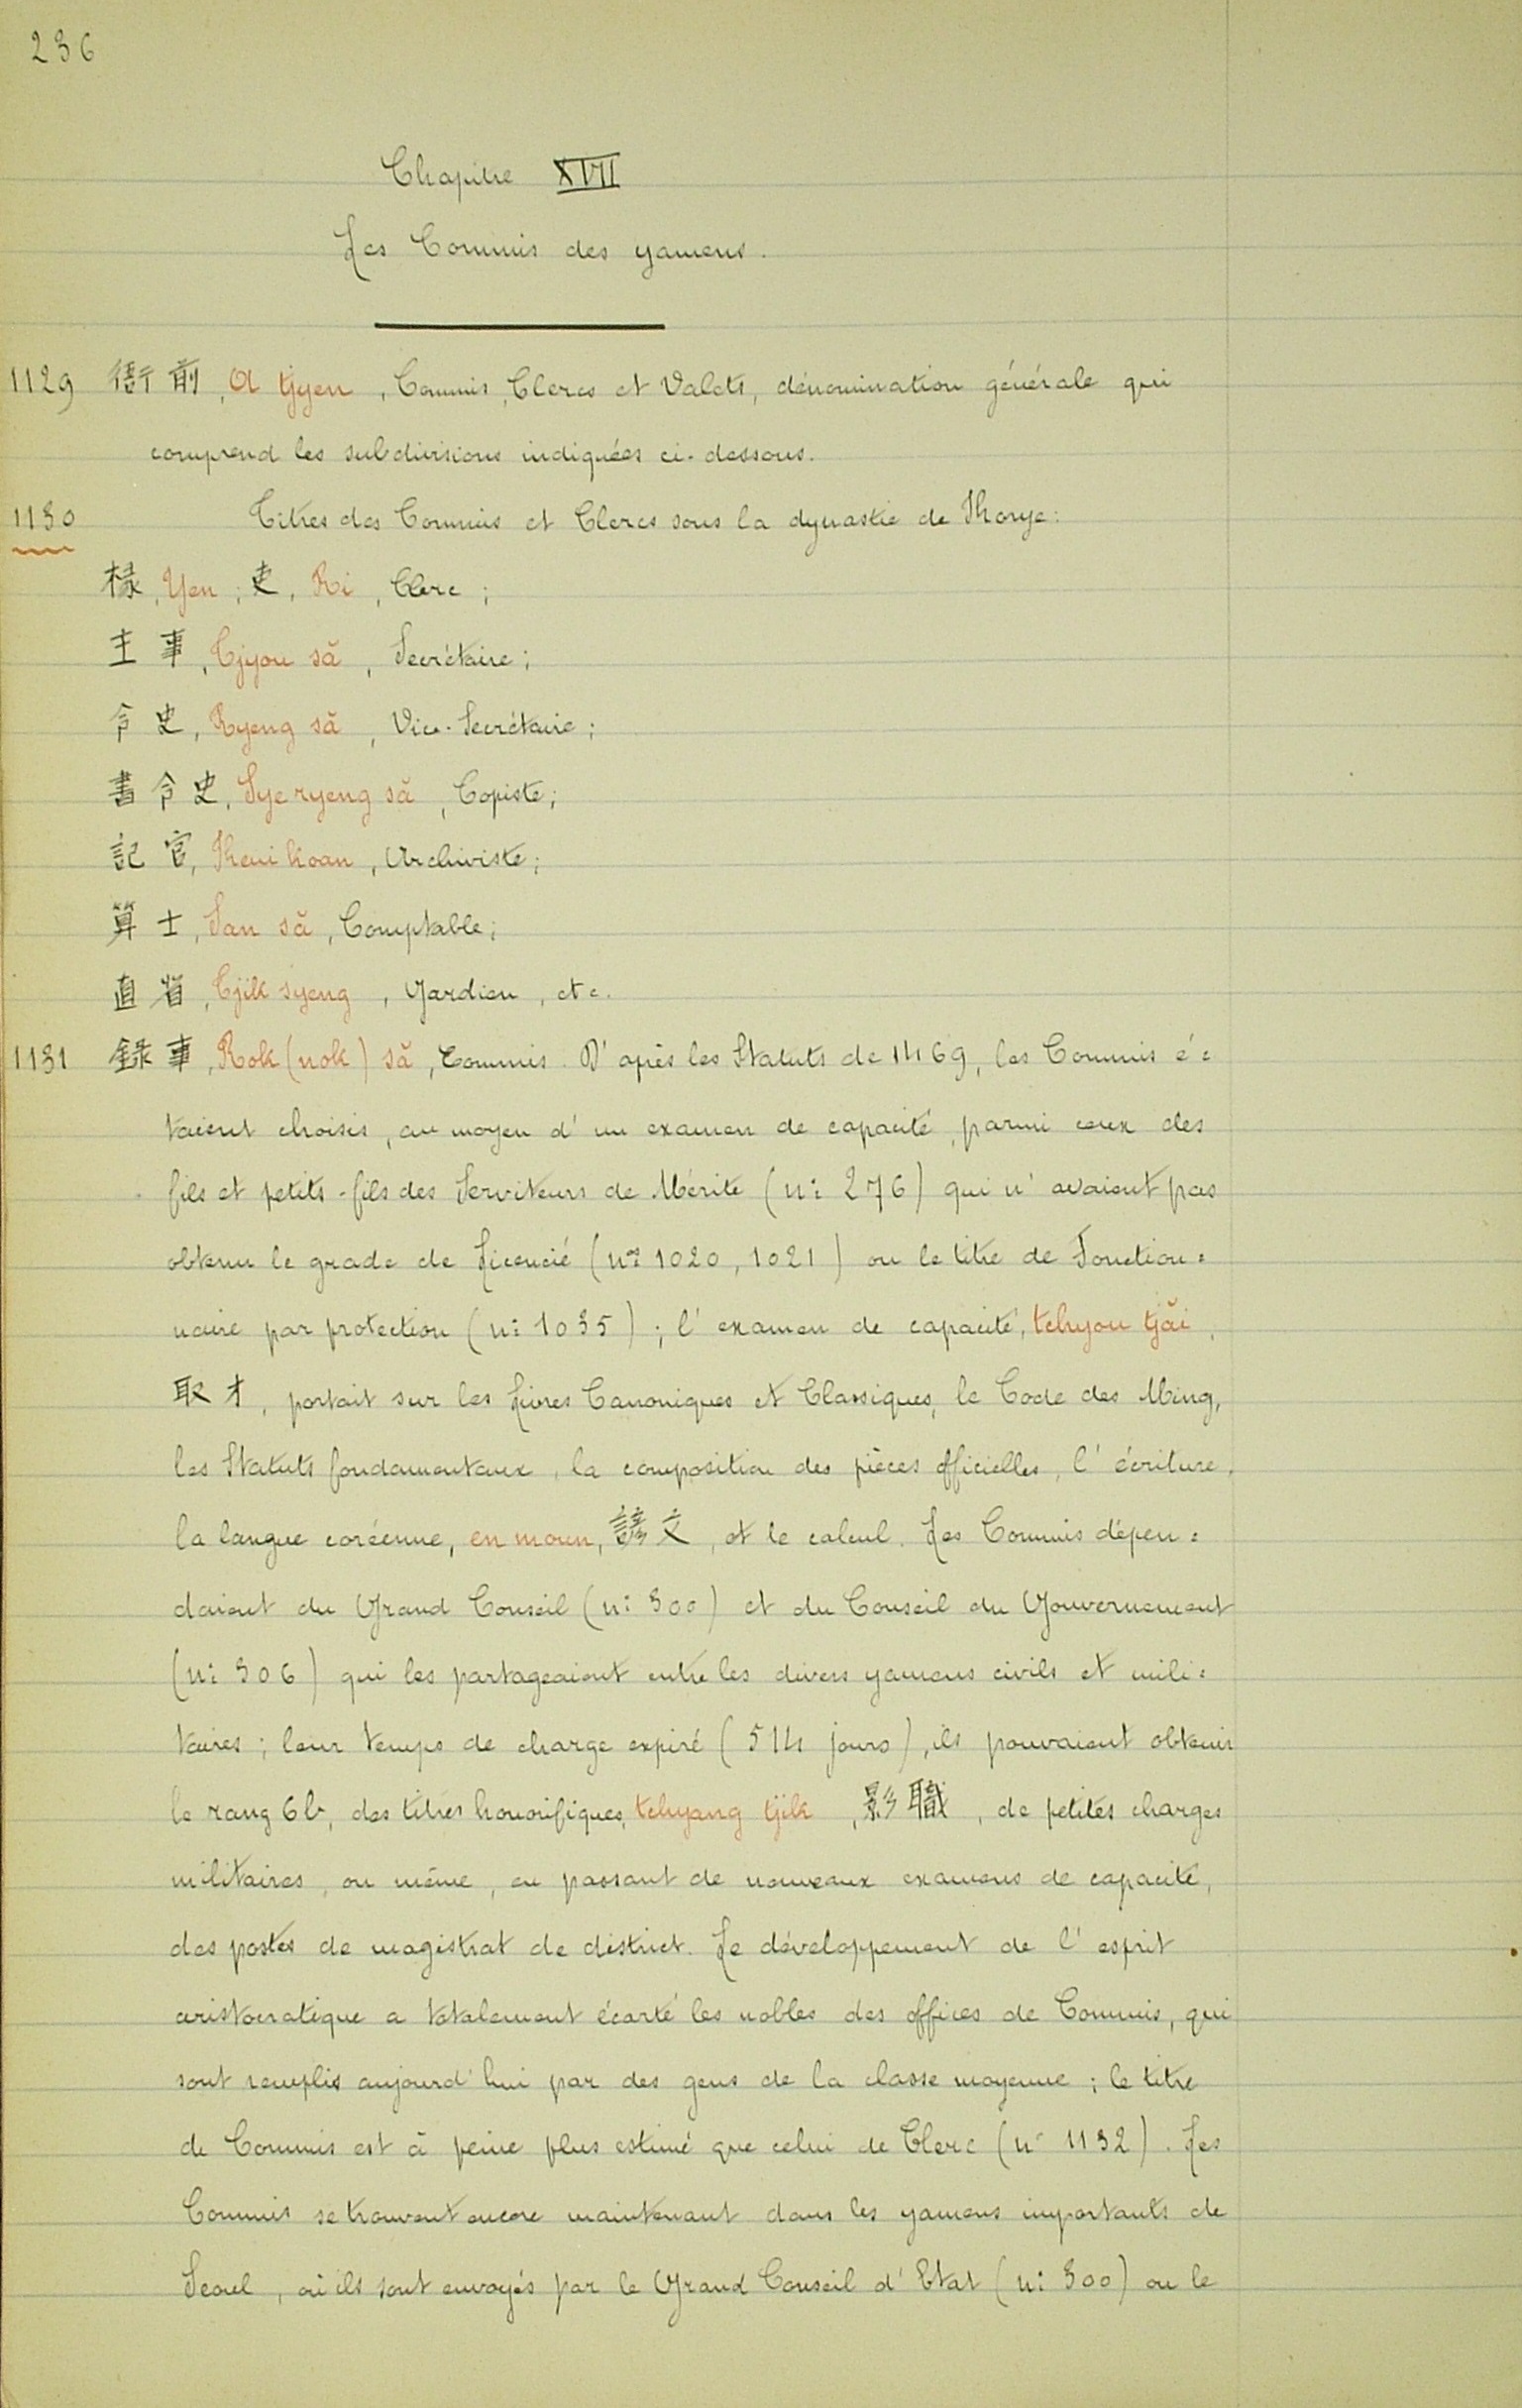 236
Chapitre XVII
Les Commis des yamens.
1129 衙前, A tjyen, Commis, Clercs et Valets, dénomination générale qui
comprend les subdivisions indiquées ci-dessous.
1130 Titres des Commis et Clercs sous la dynastie de Korye:
椽, Yen; 吏, Ri, Clerc;
主事, Tjyou să, Secrétaire;
令史, Ryeng să, Vice-Secrétaire;
書令史, Sye ryeng să, Copiste;
記官, Keui koan, Archiviste;
算士, San să, Comptable;
直省, Tjik syeng, Gardien, etc.
1131 錄事, Rok (nok) să, Commis. D'après les Statuts de 1469, les Commis é=
taient choisis, au moyen d'un examen de capacité, parmi ceux des
fils et petits-fils des Serviteurs de Mérite (nº 276) qui n'avaient pas
obtenu le grade de Licencié (nos 1020, 1021) ou le titre de Fonction=
naire par protection (nº 1035); l'examen de capacité, tchyou tjăi,
取才, portait sur les Livres Canoniques et Classiques, le Code des Ming,
les Statuts fondamentaux, la composition des pièces officielles, l'écriture,
la langue coréenne, en moun, 諺文, et le calcul. Les Commis dépen=
daient du Grand Conseil (nº 300) et du Conseil du Gouvernement
(nº 306) qui les partageaient entre les divers yamens civils et mili=
taires; leur temps de charge expiré (514 jours), ils pouvaient obtenir
le rang 6b, des titres honorifiques, tchyang tjik, 影職, de petites charges
militaires, ou même, en passant de nouveaux examens de capacité,
des postes de magistrat de district. Le développement de l'esprit
aristocratique a totalement écarté les nobles des offices de Commis, qui
sont remplis aujourd'hui par des gens de la classe moyenne; le titre
de Commis est à peine plus estimé que celui de Clerc (nº 1132). Les
Commis se trouvent encore maintenant dans les yamens importants de
Seoul, où ils sont envoyés par le Grand Conseil d'Etat (nº 300) ou le